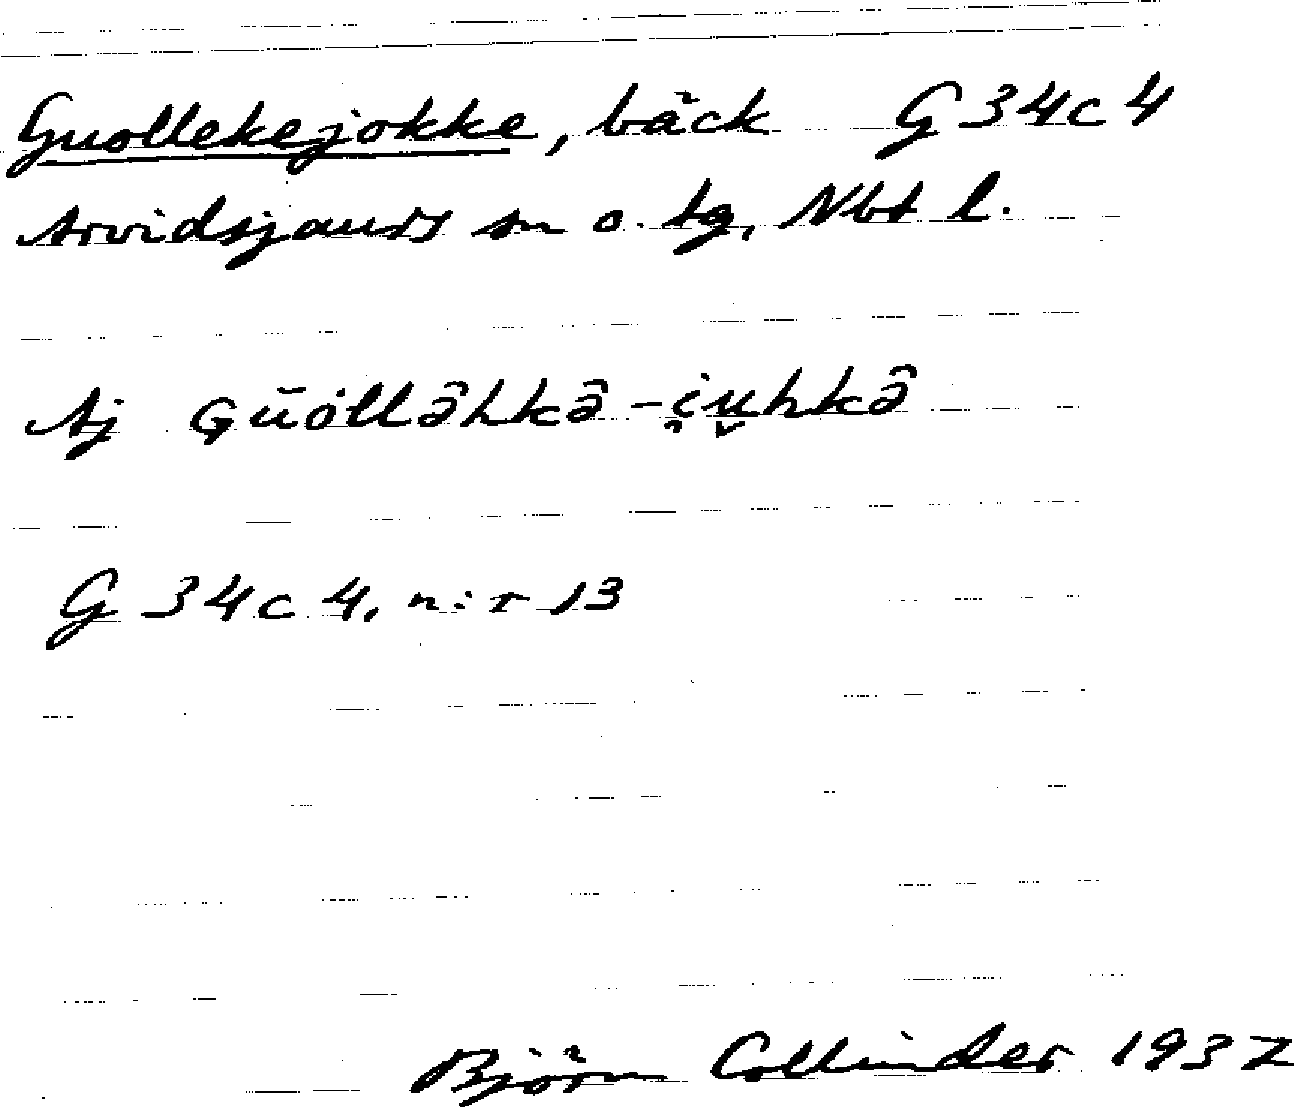 Guollekejokke, bäck G 34 c 4
Arvidsjaurs sn o. tg, Nbt l.
Aj Gūȯllâhkâ-i̯u̯hkâ
G 34 c 4, n:r 13
Björn Collinder 1937